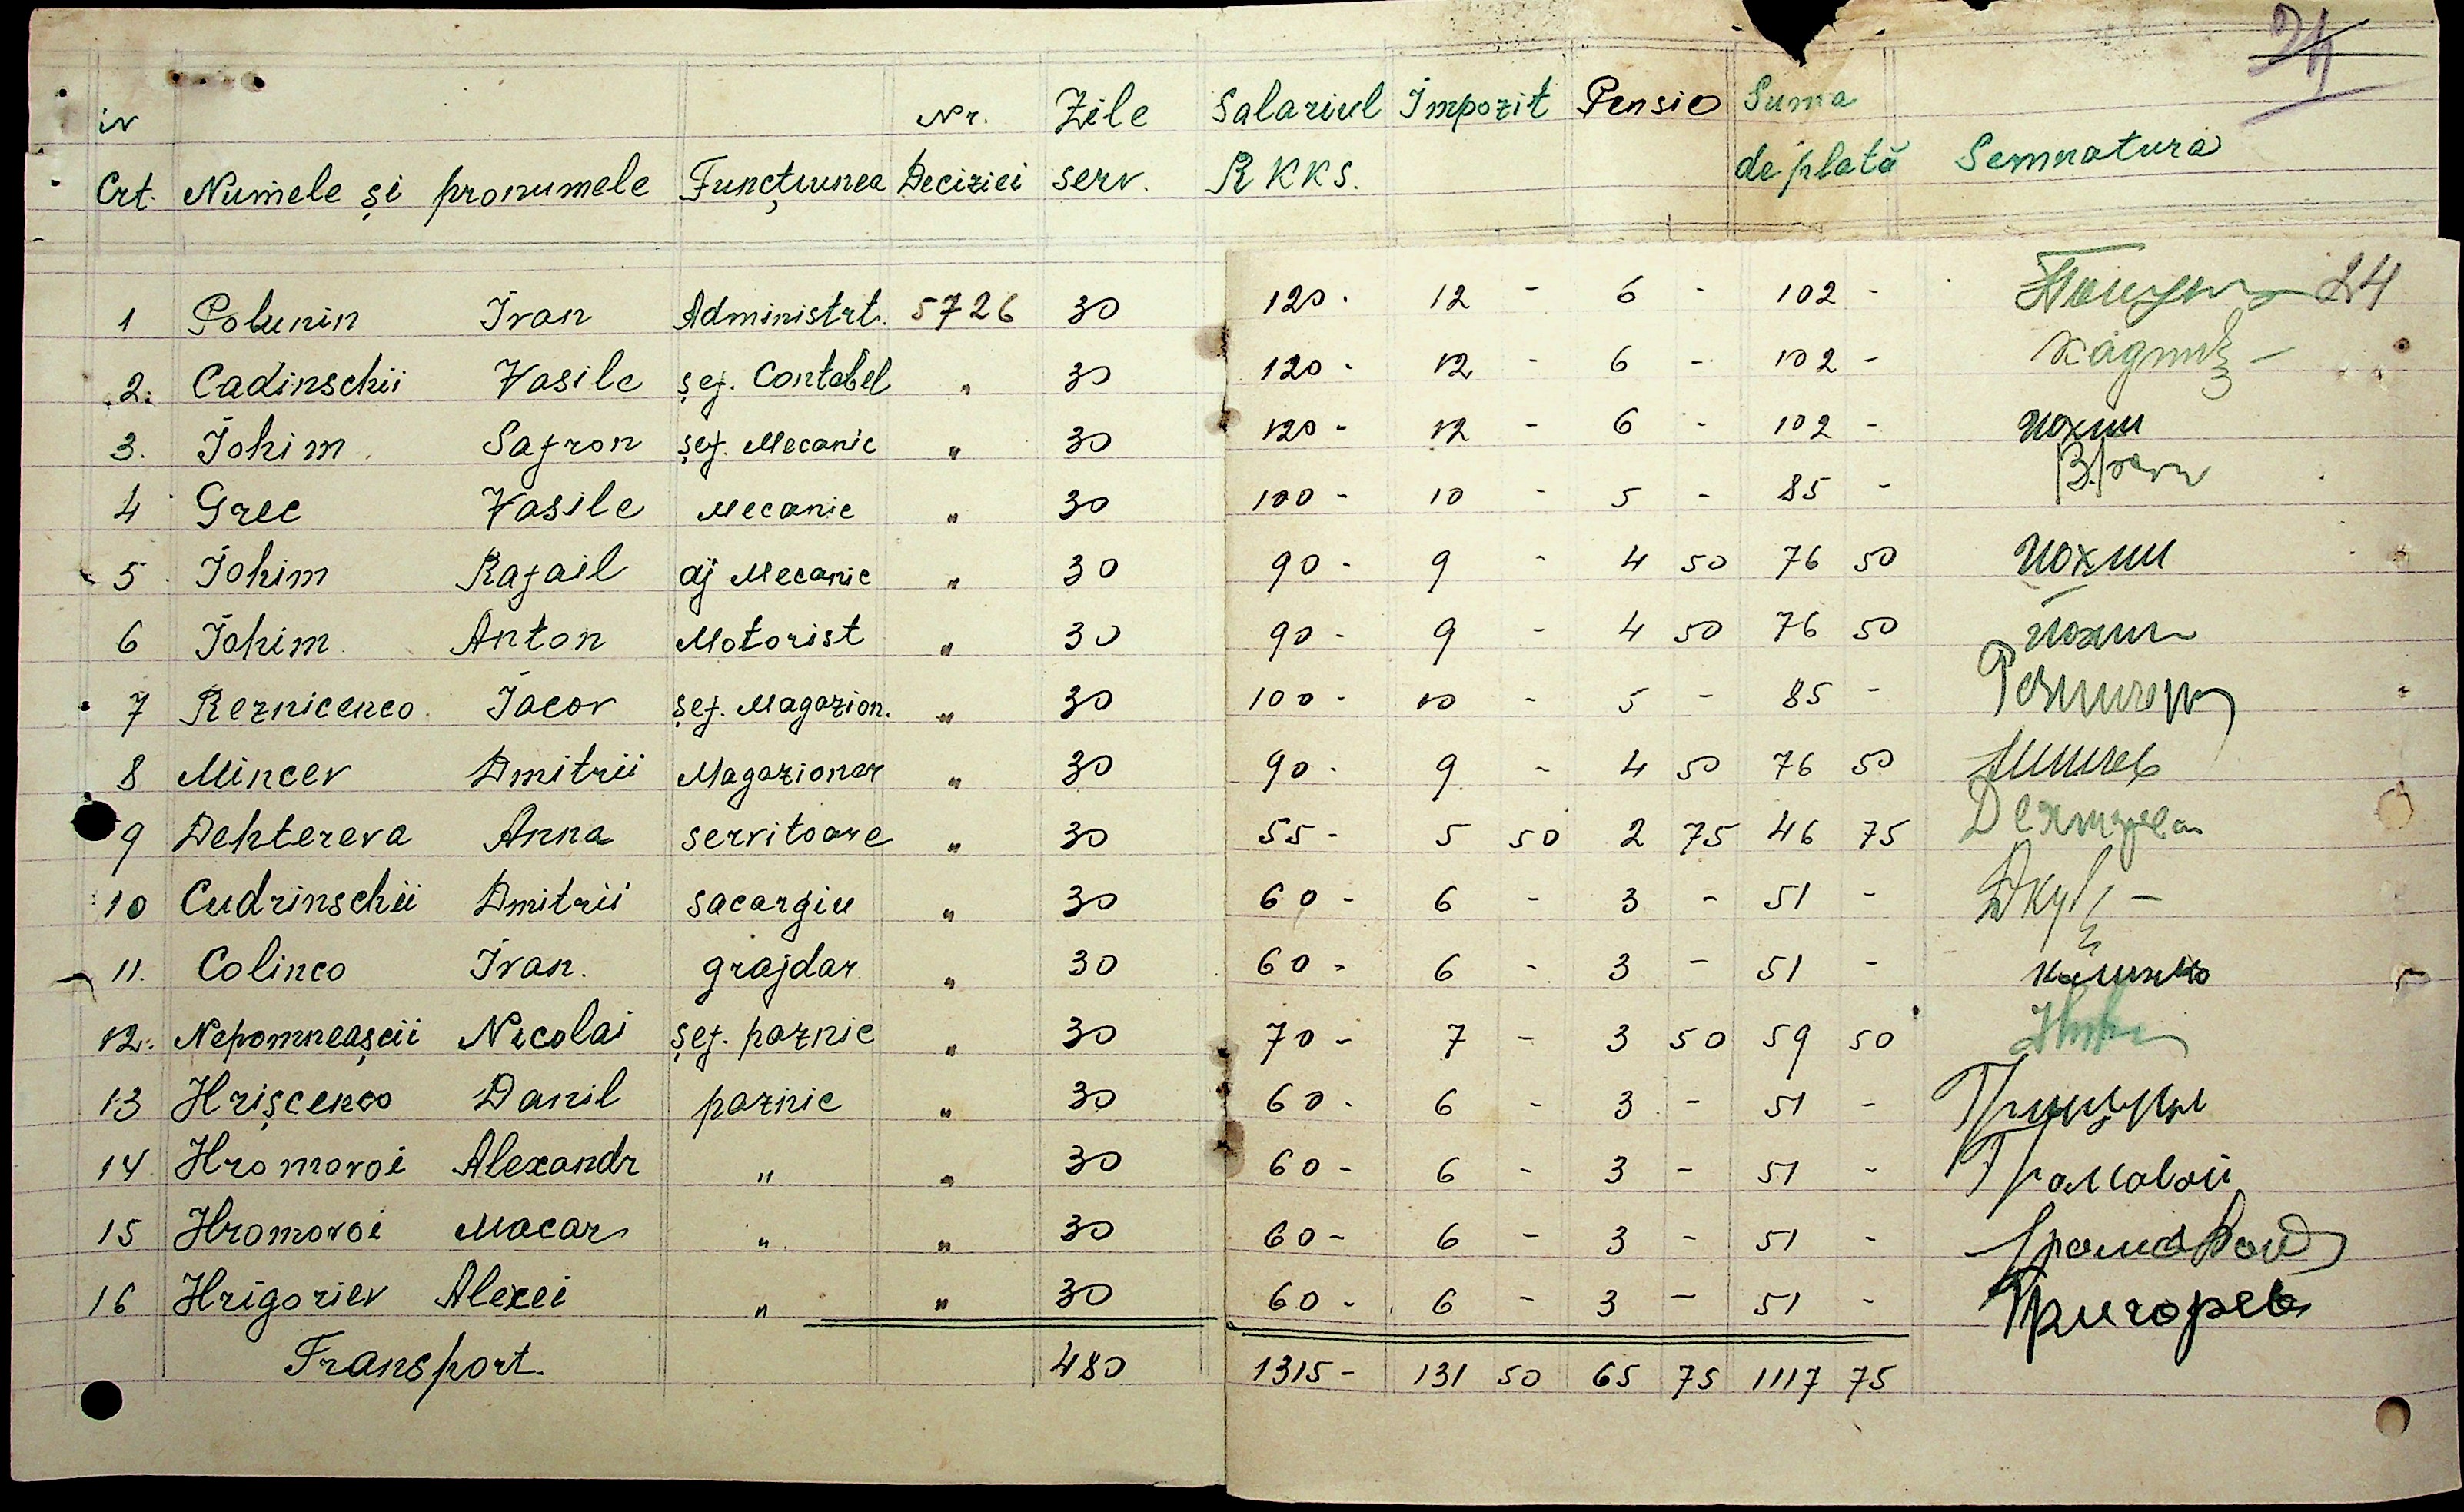 24
Nr. Zile Salariul Impozit Pensie Suma
Crt. Numele și pronumele Funcțiunea Deciziei serv. RKKS. de plată Semnatura
1 Polunin Ivan Administrt. 5726 30 120 - 12 - 6 - 102 - 24
2. Cadinschii Vasile șef. Contabel " 30 120 - 12 - 6 - 102 -
3. Iohim Safron șef. Mecanic " 30 120 - 12 - 6 - 102 - Иохим
4 Grec Vasile Mecanic " 30 100 - 10 - 5 - 85 -
5 Iohim Rafail aj Mecanic " 30 90 - 9 - 4 50 76 50 Иохим
6 Iohim Anton Motorist " 30 90 - 9 - 4 50 76 50 Иохим
7 Reznicenco Iacov șef. Magazion. " 30 100 - 10 - 5 - 85 -
8 Mincev Dmitrii Magazioner " 30 90 - 9 - 4 50 76 50 Минчев
9 Dehtereva Anna servitoare " 30 55 - 5 50 2 75 46 75
10 Cudrinschii Dmitrii sacargiu " 30 60 - 6 - 3 - 51 -
11. Colinco Ivan. grajdar " 30 60 - 6 - 3 - 51 - Калинко
12. Nepomneașcii Nicolai șef. paznic " 30 70 - 7 - 3 50 59 50
13 Hrișcenco Danil paznic " 30 60 - 6 - 3 - 51 -
14 Hromovoi Alexandr " " 30 60 - 6 - 3 - 51 - Громовой
15 Hromovoi Macar " " 30 60 - 6 - 3 - 51 - Громовой
16 Hrigoriev Alexei " " 30 60 - 6 - 3 - 51 - Григорев
Transport. 480 1315 - 131 50 65 75 1117 75